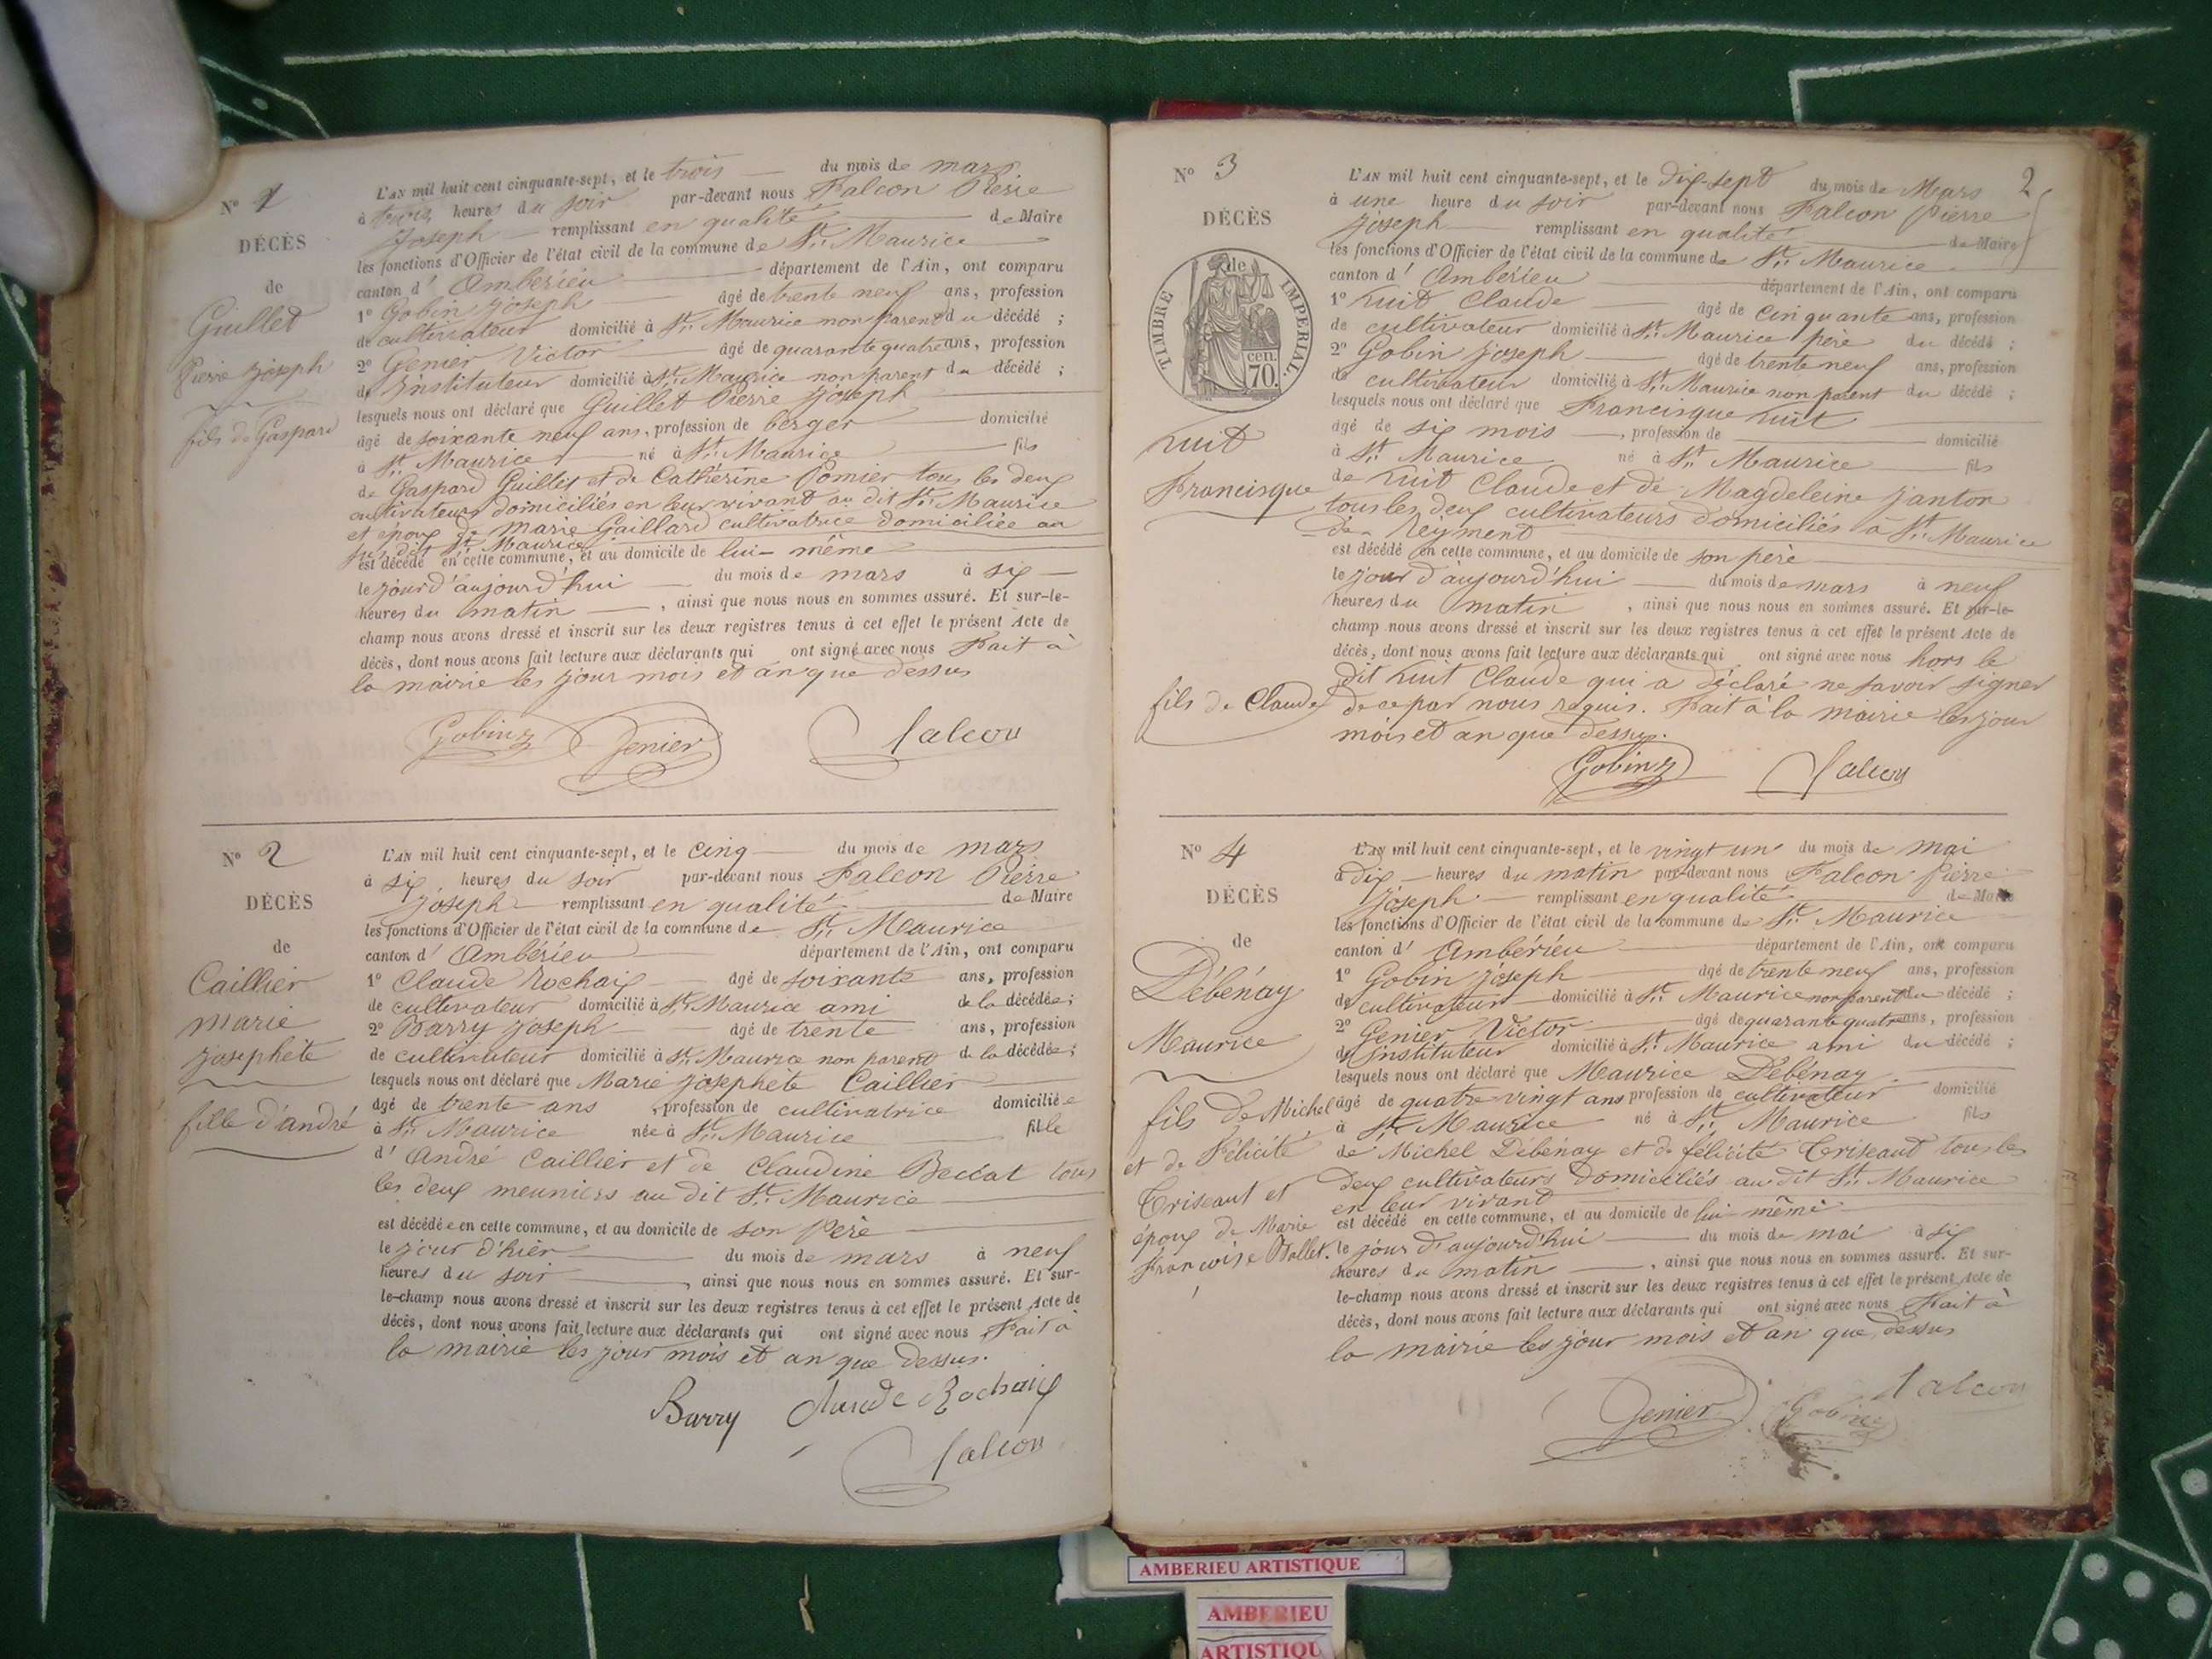 N° 1
DÉCÈS
de
Guillet
Pierre Joseph
fils de Gaspard
L'AN mil huit cent cinquante-sept, et le trois du mois de mars
à trois heures du soir par-devant nous Falcon Pierre
Joseph remplissant en qualité de Maire
les fonctions d'Officier de l'état civil de la commune de St. Maurice
canton d' Ambérieu département de l'Ain, ont comparu
1° Gobin Joseph âgé de trente neuf ans, profession
de cultivateur domicilié à St. Maurice non parent du décédé ;
2° Genier Victor âgé de quarante quatre ans, profession
d' Instituteur domicilié à St. Maurice non parent du décédé ;
lesquels nous ont déclaré que Guillet Pierre Joseph
âgé de soixante neuf ans, profession de berger domicilié
à St. Maurice né à St. Maurice fils
de Gaspard Guillet et de Cathérine Pomier tous les deux
cultivateurs domiciliés en leur vivant au dit St. Maurice
et époux de Marie Gaillard cultivatrice domiciliée au
sus dit St. Maurice
est décédé en cette commune, et au domicile de lui-même
le jour d'aujourd'hui du mois de mars à six
heures du matin , ainsi que nous nous en sommes assuré. Et sur-le-
champ nous avons dressé et inscrit sur les deux registres tenus à cet effet le présent Acte de
décès, dont nous avons fait lecture aux déclarants qui ont signé avec nous Fait à
la mairie les jour mois et an que dessus
Gobin J Genier Falcon
N° 2
DÉCÈS
de
Caillier
Marie
Josephète
fille d'andré
L'AN mil huit cent cinquante-sept, et le cinq du mois de mars
à six heures du soir par-devant nous Falcon Pierre
Joseph remplissant en qualité de Maire
les fonctions d'Officier de l'état civil de la commune de St. Maurice
canton d' Ambérieu département de l'Ain, ont comparu
1° Claude Rochaix âgé de soixante ans, profession
de cultivateur domicilié à St. Maurice ami de la décédée ;
2° Barry Joseph âgé de trente ans, profession
de cultivateur domicilié à St. Maurice non parent de la décédée ;
lesquels nous ont déclaré que Marie Josephète Caillier
âgé de trente ans , profession de cultivatrice domiciliée
à St. Maurice née à St. Maurice fille
d' André Caillier et de Claudine Beccat tous
les deux meuniers au dit St. Maurice
est décédée en cette commune, et au domicile de son Père
le jour d'hier du mois de mars à neuf
heures du soir , ainsi que nous nous en sommes assuré. Et sur-
le-champ nous avons dressé et inscrit sur les deux registres tenus à cet effet le présent Acte de
décès, dont nous avons fait lecture aux déclarants qui ont signé avec nous Fait à
la mairie les jour mois et an que dessus.
Barry Claude Rochaix
Falcon
2
N° 3
DÉCÈS
de
TIMBRE IMPÉRIAL.
cen.
70.
Francisque
fils de Claude
L'AN mil huit cent cinquante-sept, et le dix-sept du mois de Mars
à une heure du soir par-devant nous Falcon Pierre
Joseph remplissant en qualité de Maire
les fonctions d'Officier de l'état civil de la commune de St. Maurice
canton d' Ambérieu département de l'Ain, ont comparu
1° Claude âgé de cinquante ans, profession
de cultivateur domicilié à St. Maurice père du décédé ;
2° Gobin Joseph âgé de trente neuf ans, profession
de cultivateur domicilié à St. Maurice non parent du décédé ;
lesquels nous ont déclaré que Francisque
âgé de six mois , profession de domicilié
à St. Maurice né à St. Maurice fils
de Claude et de Magdeleine Janton
tous les deux cultivateurs domiciliés à St. Maurice
de Reyment
est décédé en cette commune, et au domicile de son père
le jour d'aujourd'hui du mois de mars à neuf
heures du matin , ainsi que nous nous en sommes assuré. Et sur-le-
champ nous avons dressé et inscrit sur les deux registres tenus à cet effet le présent Acte de
décès, dont nous avons fait lecture aux déclarants qui ont signé avec nous hors le
dit Claude qui a déclaré ne savoir signer
de ce par nous requis. Fait à la mairie les jour
mois et an que dessus.
Gobin J Falcon
N° 4
DÉCÈS
de
Débénay
Maurice
fils de Michel
et de Félicité
Triseaut et
époux de Marie
Françoise Ballet.
L'AN mil huit cent cinquante-sept, et le vingt un du mois de mai
à dix heures du matin par-devant nous Falcon Pierre
Joseph remplissant en qualité de Maire
les fonctions d'Officier de l'état civil de la commune de St. Maurice
canton d' Ambérieu département de l'Ain, ont comparu
1° Gobin Joseph âgé de trente neuf ans, profession
de cultivateur domicilié à St. Maurice non parent du décédé ;
2° Genier Victor âgé de quarante quatre ans, profession
d' Instituteur domicilié à St. Maurice ami du décédé ;
lesquels nous ont déclaré que Maurice Débénay
âgé de quatre vingt ans profession de cultivateur domicilié
à St. Maurice né à St. Maurice fils
de Michel Débénay et de félicité Triseaut tous les
deux cultivateurs domiciliés au dit St. Maurice
en leur vivant
est décédé en cette commune, et au domicile de lui-même
le jour d'aujourd'hui du mois de mai à six
heures du matin , ainsi que nous nous en sommes assuré. Et sur-
le-champ nous avons dressé et inscrit sur les deux registres tenus à cet effet le présent Acte de
décès, dont nous avons fait lecture aux déclarants qui ont signé avec nous Fait à
la mairie les jour mois et an que dessus
Genier Gobin J Falcon
AMBERIEU ARTISTIQUE
AMBERIEU
ARTISTIQU